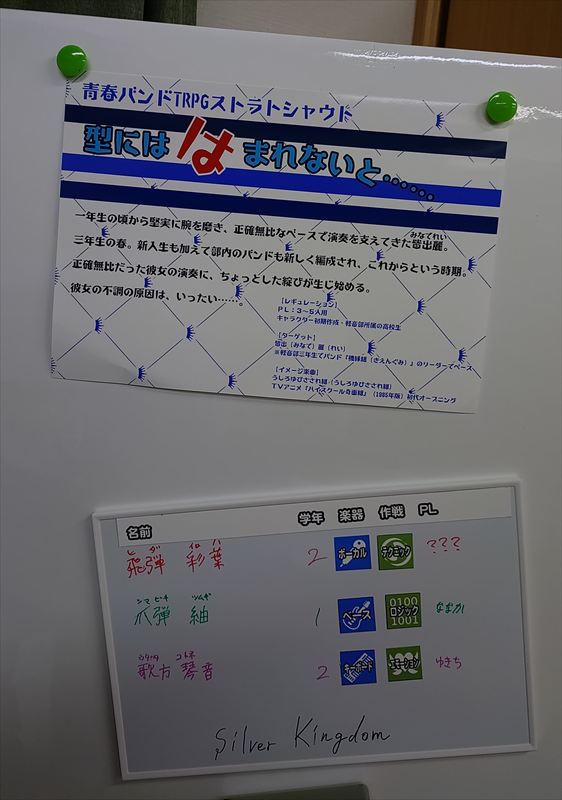 青春バンドTRPGストラトシャウト
型にははまれないと……
みなでれい
一年生の頃から堅実に腕を磨き、正確無比なベースで演奏を支えてきた皆出麗。
三年生の春。新入生も加えて部内のバンドも新しく編成され、これからという時期。
正確無比だった彼女の演奏に、ちょっとした綻びが生じ始める。
彼女の不調の原因は、いったい……。
【レギュレーション】
PL：3～5人用
キャラクター初期作成・軽音部所属の高校生
【ターゲット】
皆出（みなで）麗（れい）
※軽音部三年生でバンド「機縁組（きえんぐみ）」のリーダーでベース
【イメージ楽曲】
うしろゆびさされ組（うしろゆびさされ組）
TVアニメ『ハイスクール奇面組』（1985年版）初代オープニング
名前 学年 楽器 作戦 PL
ヒダ イロハ
飛弾 彩葉 2 ボーカル テクニック ???
シマビキ ツムギ
爪弾 紬 1 ベース 0100 ロジック 1001 なまか
ウタカタ コトネ
歌方 琴音 2 キーボード エモーション ゆきち
Silver Kingdom